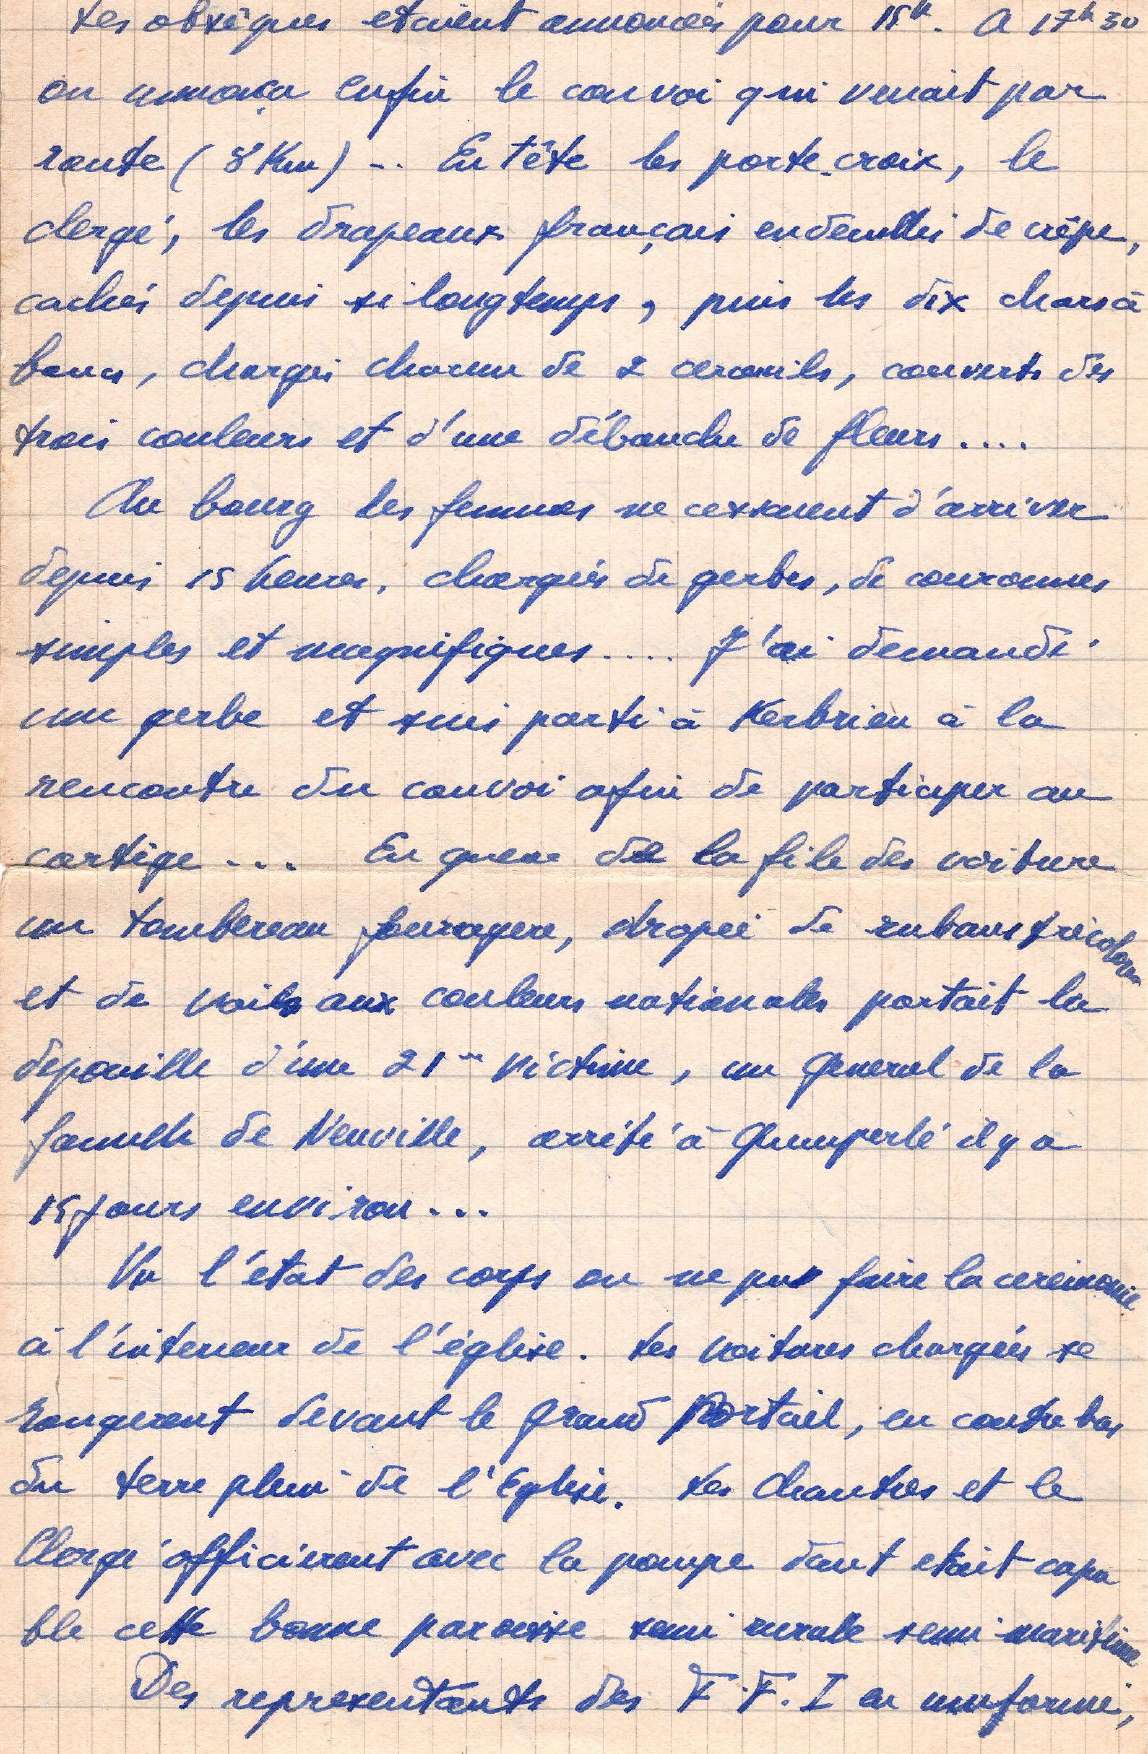 Les obsèques etaient annoncées pour 15h. A 17h30
on annonça enfin le convoi qui venait par
route (8 Km) -.. En tête les porte-croix, le
clergé, les drapeaux français endeuillés de crêpe,
cachés depuis si longtemps, puis les dix chars à
bancs, chargés chacun de 2 cercueils, couverts des
trois couleurs et d'une débauche de fleurs....
Au bourg les femmes ne cessaient d'arriver
depuis 15 heures, chargées de gerbes, de couronnes
simples et magnifiques.... J'ai demandé
une gerbe et suis parti à Kerbrien à la
rencontre du convoi afin de participer au
cortège... En queue de la file des voitures
un tombereau fouragere, drapée de rubans tricolores
et de voiles aux couleurs nationales portait la
depouille d'une 21me victime, un General de la
famille de Neuville, arrêté à Quimperlé il y a
15 jours environ...
Vu l'état des corps on ne put faire la ceremonie
à l'interieur de l'église. Les voitures chargées se
rangerent devant le grand Portail, en contre bas
du terre plein de l'Eglise. Les Chantres et le
Clergé officierent avec la pompe dont etait capa
ble cette bonne paroisse semi rurale semi-maritime
Des representants des F.F.I en uniforme,